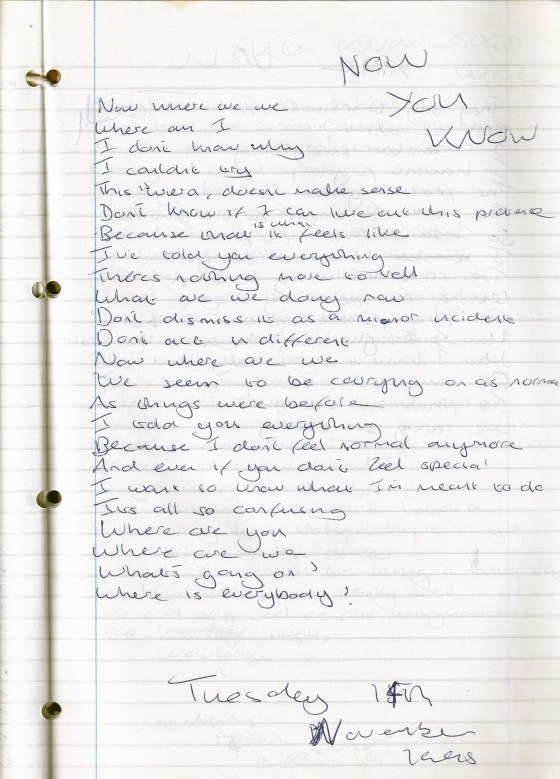 NOW
YOU
KNOW
Now where are we
Where am I
I don't know why
I couldn't try
This doesn't make sense
Don't know if I can live out this pretence
Because that is what it feels like
I've told you everything
Theres nothing more to tell
What are we doing now
Don't dismiss it as a minor incident
Don't act indifferent
Now where are we
We seem to be carrying on as normal
As things were before
I told you everything
Because I don't feel normal anymore
And even if you don't feel special
I want to know what I'm meant to do
It's all so confusing
Where are you
Where are we
What's going on?
Where is everybody?
Tuesday
November